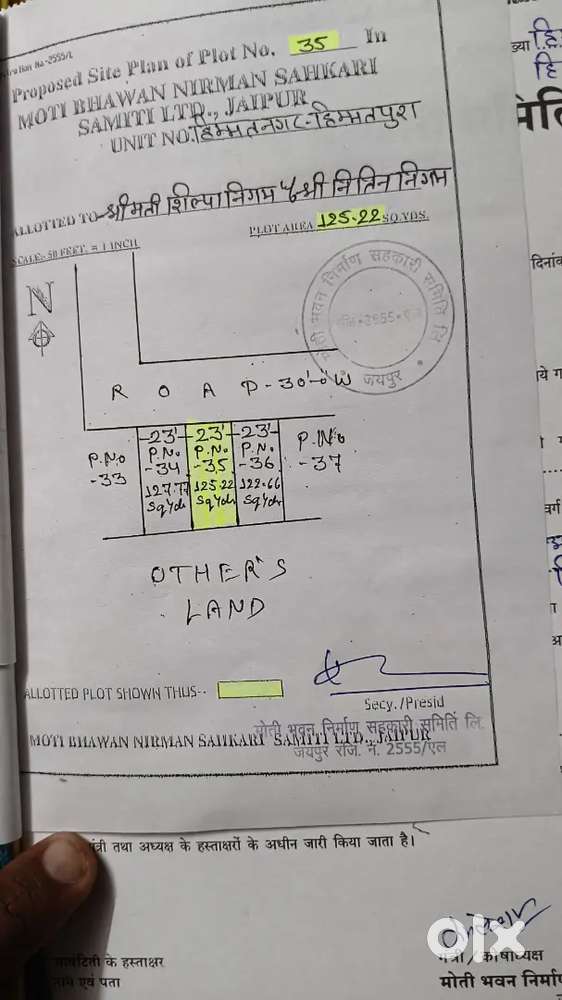 No-2555/L
Proposed Site Plan of Plot No. 35 In
MOTI BHAWAN NIRMAN SAHKARI
SAMITI LTD., JAIPUR
UNIT NO. हिम्मतनगर-हिम्मतपुरा
ALLOTTED TO- श्रीमती शिल्पा निगम श्री नितिन निगम
PLOT AREA 125.22 SQ.YDS.
SCALE:- 50 FEET. = 1 INCH
N
मोती भवन निर्माण सहकारी समिति लि
जयपुर
ROAD-30'-0"W
P.No
-33
-23'-
P.No
-34
127.77
Sqyds
-23'-
P.No
-35
125.22
Sqyds
-23'-
P.No
-36
122.66
Sqyds
P.No
-37
OTHER'S
LAND
ALLOTTED PLOT SHOWN THUS--
Secy./Presid
MOTI BHAWAN NIRMAN SAHKARI SAMITI LTD., JAIPUR
मोती भवन निर्माण सहकारी समिति लि.
जयपुर रजि. नं. 2555/एल
मंत्री तथा अध्यक्ष के हस्ताक्षरों के अधीन जारी किया जाता है।
के हस्ताक्षर
नाम एवं पता
मंत्री/कोषाध्यक्ष
मोती भवन निर्मा
दिनांक
olx